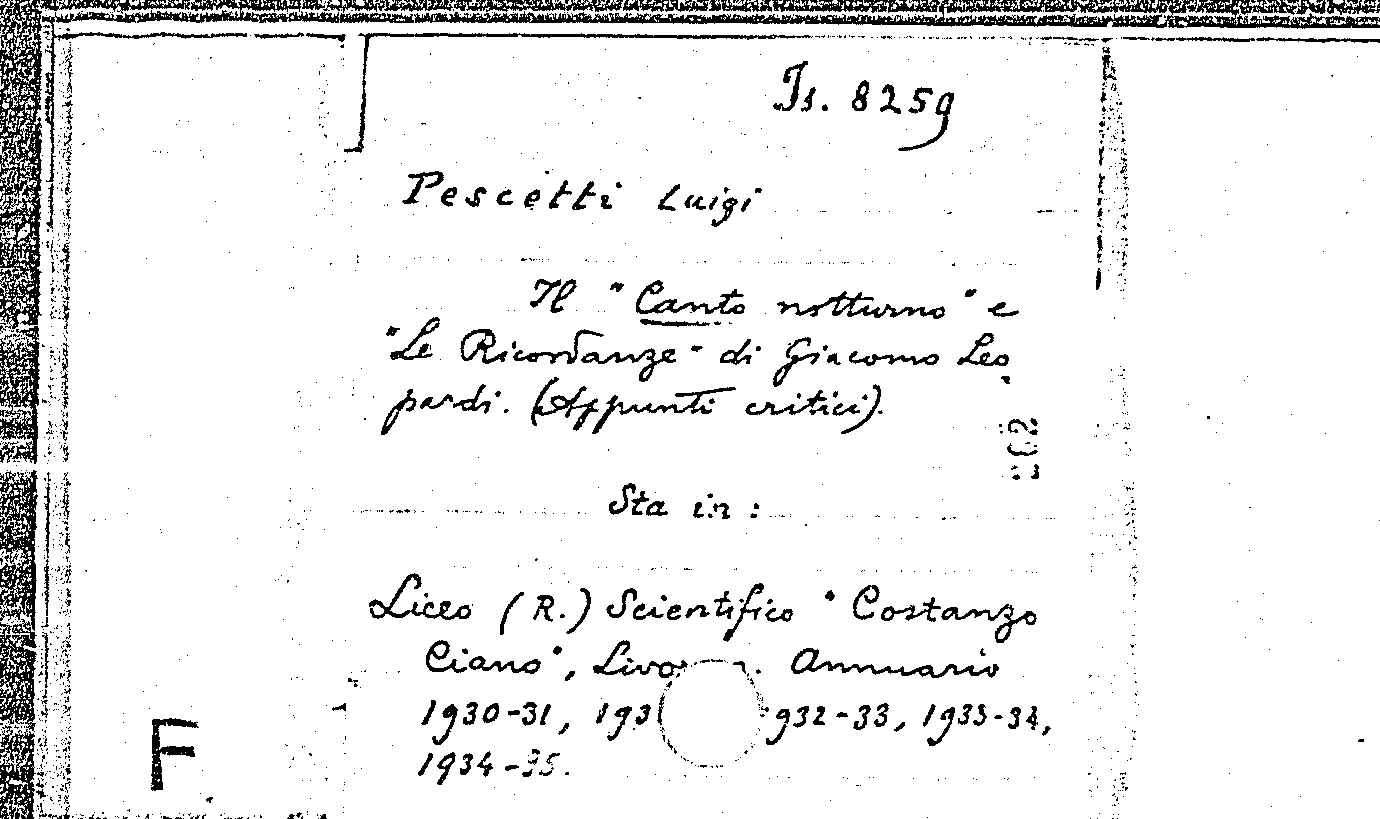 Is. 8259
Pescetti Luigi
Il "Canto notturno" e
"Le Ricordanze" di Giacomo Leo
pardi. (Appunti critici).
Sta in:
Liceo (R.) Scientifico "Costanzo
Ciano", Annuario
1930-31, 932-33, 1933-34,
1934-35.
F